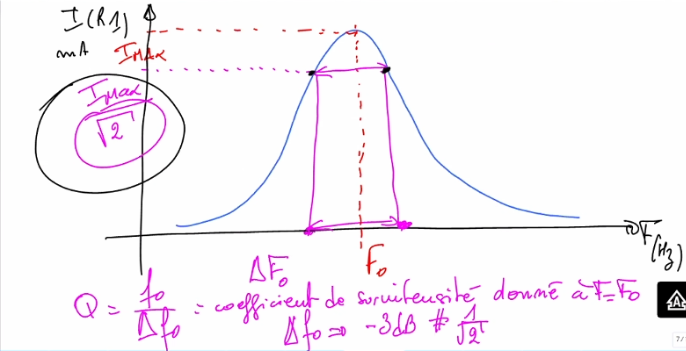 I(R1)
mA
IMAX
Imax
√2
F (Hz)
Fo
ΔFo
Q = fo / Δfo = coefficient de surintensité donné à F=Fo
Δfo => -3dB # 1/√2
7/